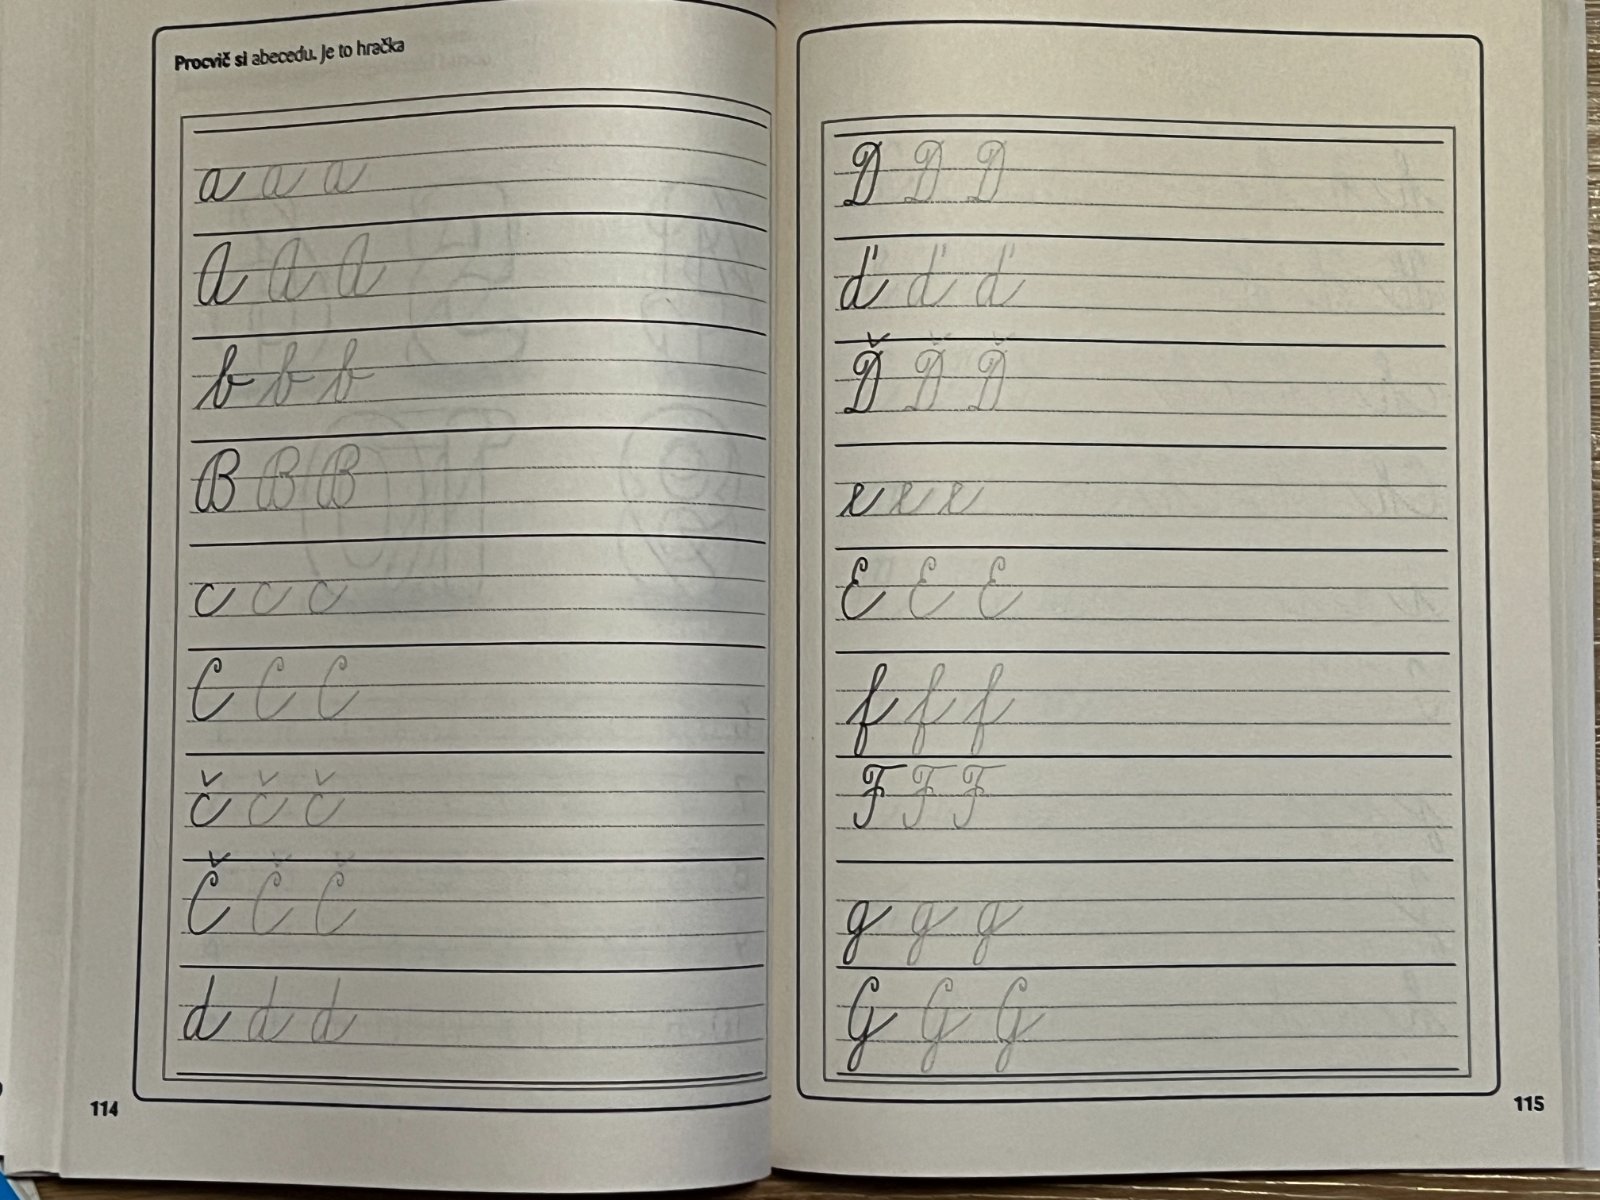 Procvič si abecedu. Je to hračka
a a a
A A A
b b b
B B B
c c c
C C C
č č č
Č Č Č
d d d
114
D D D
ď ď ď
Ď Ď Ď
e e e
E E E
f f f
F F F
g g g
G G G
115